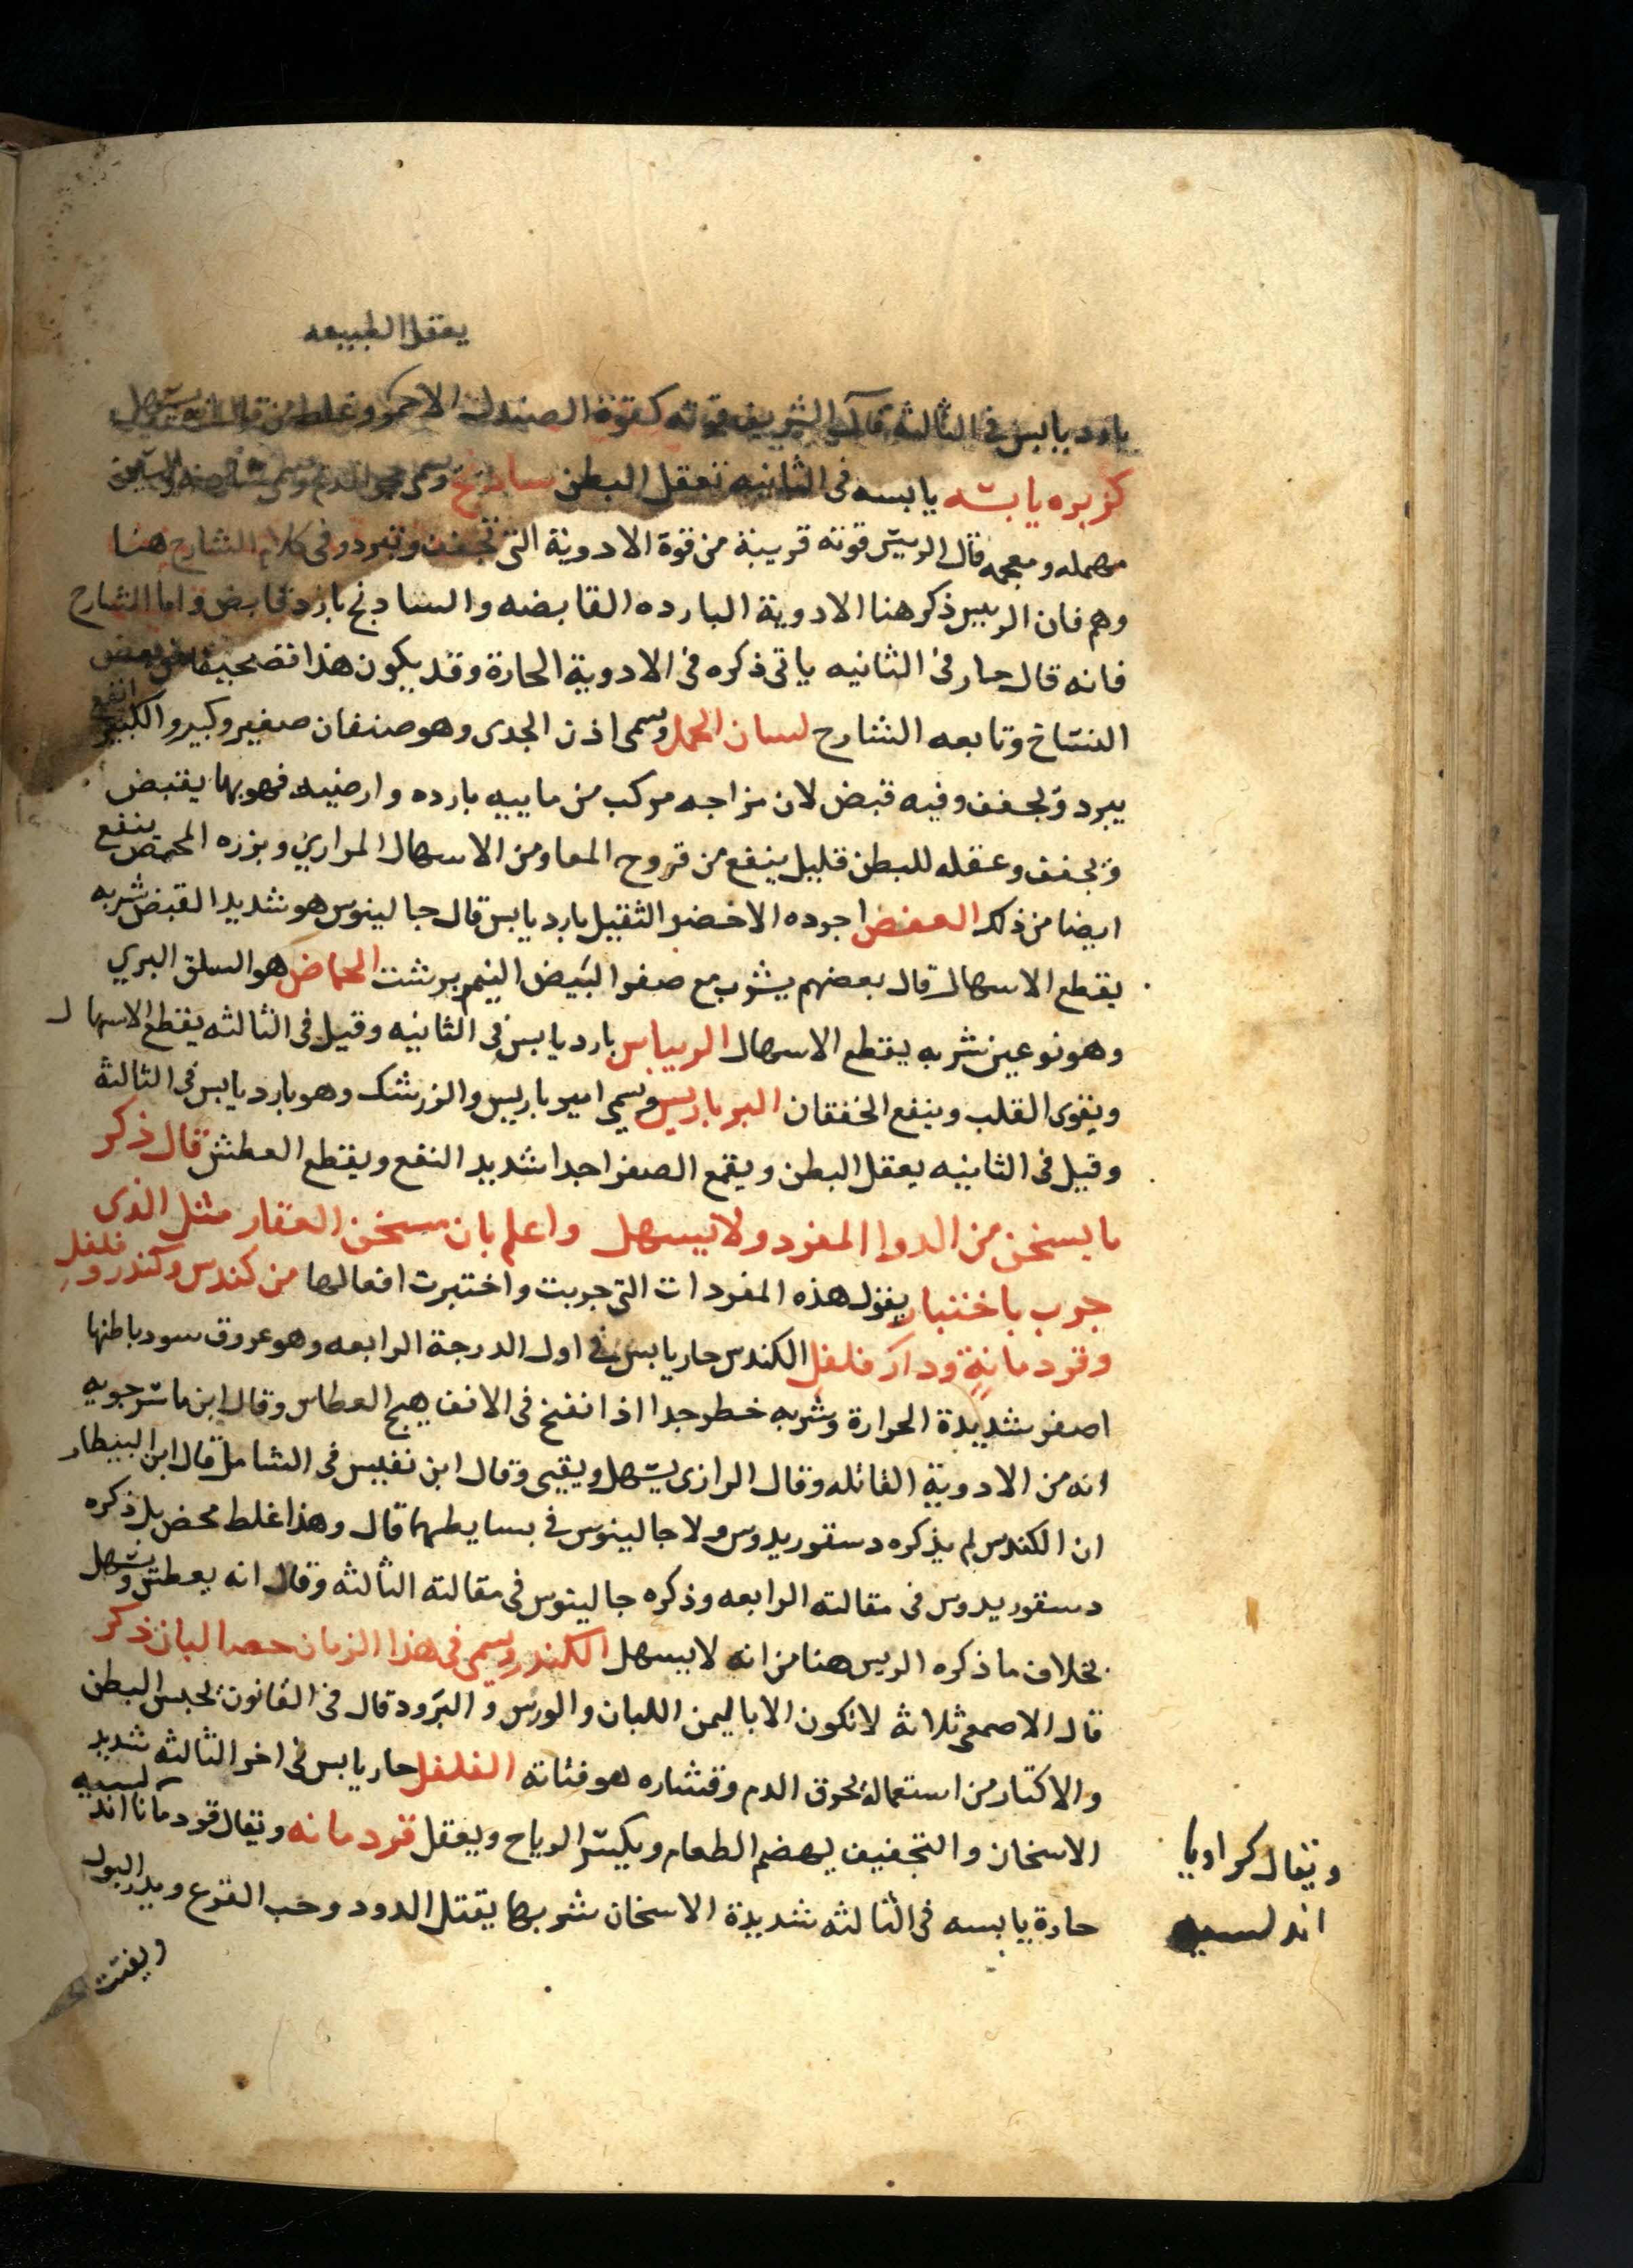 يعقل الطبيعه
بارد يابس فى الثالثه قال الشريف قوته كقوة الصندل الاحمر وغلط من قال انه يسهل
كزبره يابسه يابسه فى الثانيه تعقل البطن سادنج وسمى حجر الدم
مهمله ومعجمه قال الرييس قوته قريبة من قوة الادوية التى تجفف وتبرد وفى كلام الشارح هنا
وهم فان الرييس ذكر هنا الادوية البارده القابضه والسادنج بارد قابض واما الشارح
فانه قال حار فى الثانيه ياتى ذكره فى الادوية الحارة وقد يكون هذا تصحيفا من بعض
النساخ وتابعه الشارح لسان الحمل وسمى اذن الجدى وهو صنفان صغير وكبير والكبير انفع
يبرد ويجفف وفيه قبض لان مزاجه مركب من ماييه بارده وارضيه فهو بها يقبض
ويجفف وعقله للبطن قليل ينفع من قروح المعا ومن الاسهال المراري وبزره المحمص ينفع
ايضا من ذلك العفص اجوده الاخضر الثقيل بارد يابس قال جالينوس هو شديد القبض شربه
يقطع الاسهال قال بعضهم يشرب مع صفر البيض النيمبرشت الحماض هو السلق البري
وهو نوعين شربه يقطع الاسهال الريباس بارد يابس فى الثانيه وقيل فى الثالثه يقطع الاسهال
ويقوى القلب وينفع الخفقان البرباريس وسمي اميرباريس والزرشك وهو بارد يابس فى الثالثة
وقيل فى الثانيه يعقل البطن ويقمع الصفرا جدا شديد النفع ويقطع العطش قال ذكر
ما يسخن من الدوا المفرد ولا يسهل واعلم بان مسخن العقار مثل الذى
جرب باختبار يقول هذه المفردات التى جربت واختبرت افعالها من كندس وكندر وفلفل
وقردمانة ودار فلفل الكندس حار يابس فى اول الدرجة الرابعه وهو عروق سود باطنها
اصفر شديدة الحرارة وشربه خطر جدا اذا نفخ فى الانف يهيج العطاس وقال ابن ماسرجويه
انه من الادوية القاتله وقال الرازى يسهل ويقيى وقال ابن نفيس فى الشامل قال ابن البيطار
ان الكندس لم يذكره دسقوريدوس ولا جالينوس فى بسايطهما قال وهذا غلط محض بل ذكره
دسقوريدوس فى مقالته الرابعه وذكره جالينوس فى مقالته الثالثه وقال انه يعطش ويسهل
بخلاف ما ذكره الرييس هنا من انه لا يسهل الكندر وسمى فى هذا الزمان حصا لبان ذكر
قال الاصمعى ثلاثة لا تكون الا باليمن اللبان والورس و البرود قال فى القانون يحبس البطن
والاكثار من استعماله يحرق الدم وقشاره هو فتاته الفلفل حار يابس فى اخر الثالثه شديد
الاسخان والتجفيف يهضم الطعام ويكسر الرياح ويعقل قردمانه ويقال قردمانا اندلسيه
ويقال كراويا
اندلسيه
حارة يابسه فى الثالثه شديدة الاسخان شربها يقتل الدود وحب القرع ويدر البول
ويفتت